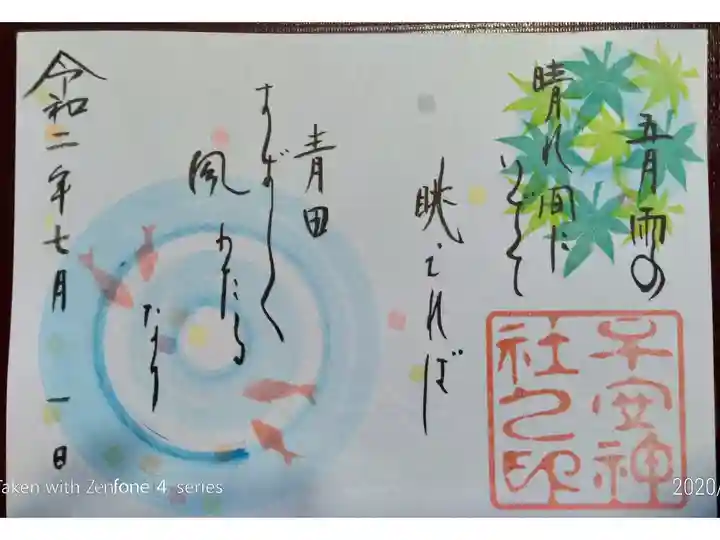 五月雨の
晴れ間にいでて
眺むれば
青田
すずしく
風わたる
なり
令和二年七月一日
子安神
社之印
Taken with Zenfone 4 series
2020/